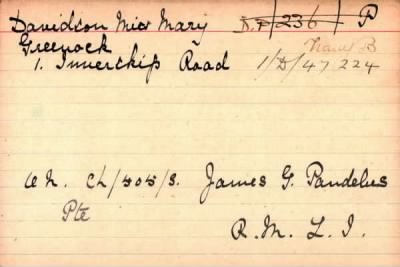 Davidson Miss Mary D.F/236/ P
Greenock Trans B
1. Innerkip Road 1/D/47 224
Ch/505/S. James G. Pandelus
Pte
R. M. L. I.